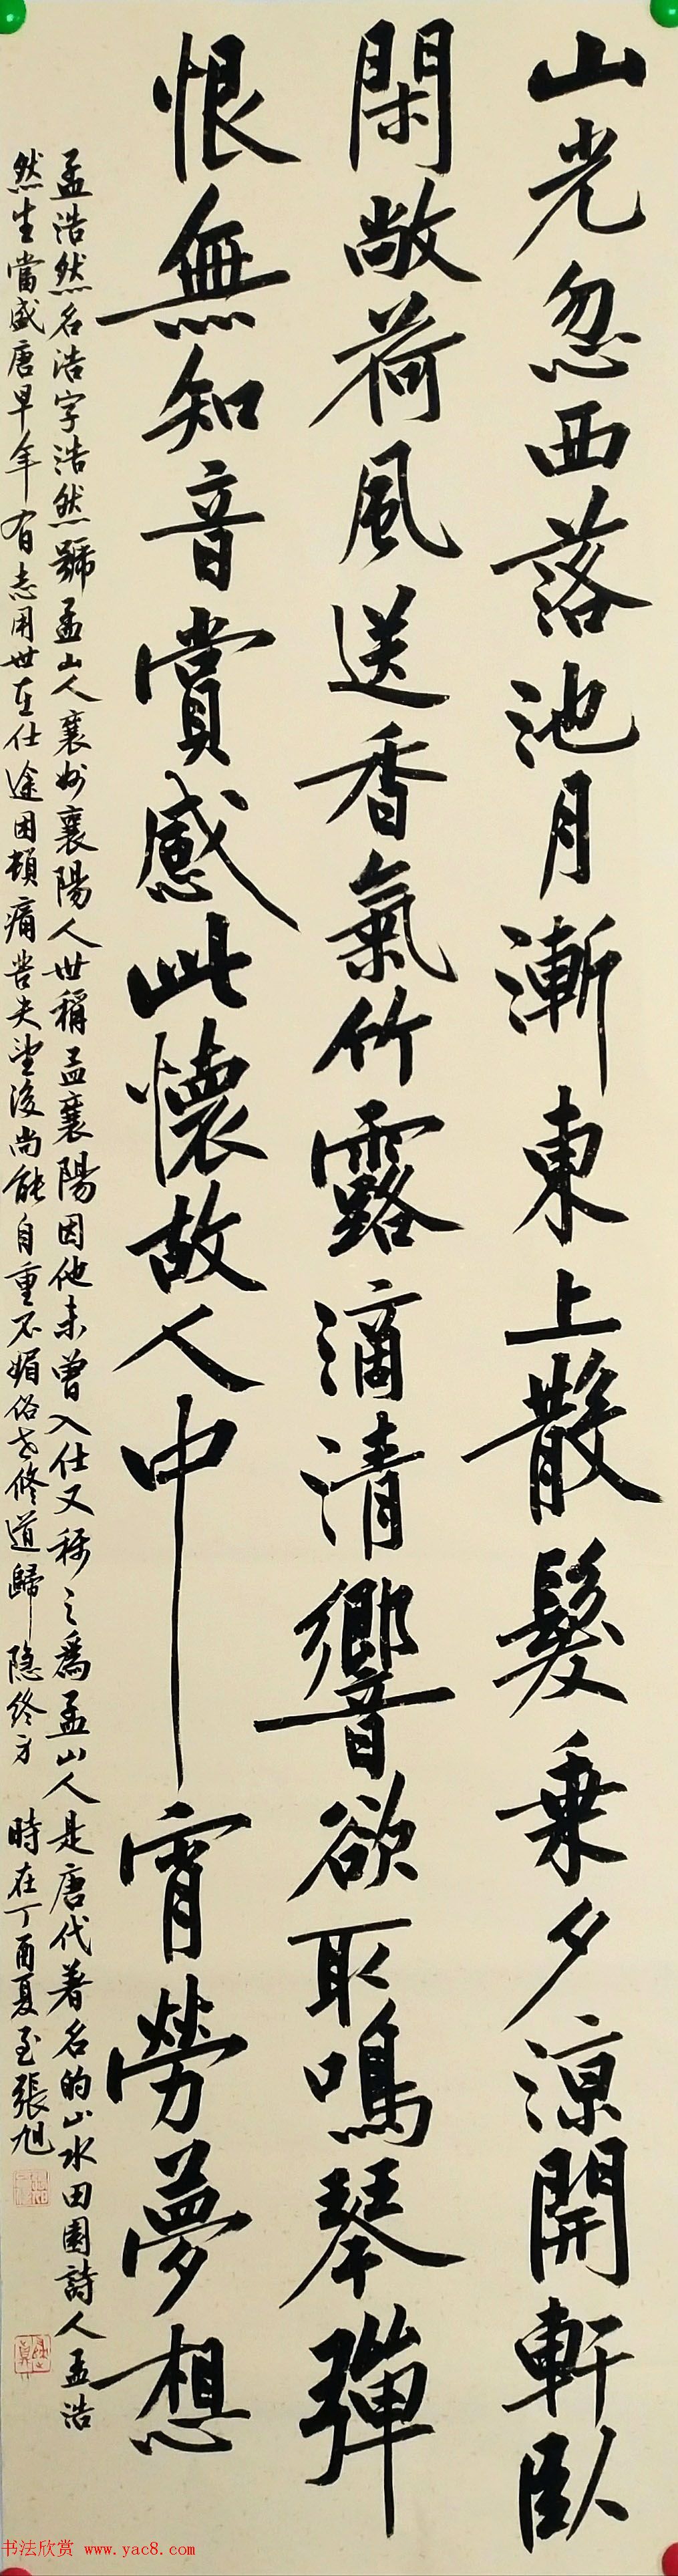 山光忽西落池月漸東上散髮乗夕涼開軒臥
閑敞荷風送香氣竹露滴清響欲取鳴琴彈
恨無知音賞感此懷故人中宵勞夢想
孟浩然名浩字浩然號孟山人襄州襄陽人世稱孟襄陽因他未曾入仕又稱之爲孟山人是唐代著名的山水田園詩人孟浩
然生當盛唐早年有志用世在仕途困頓痛苦失望後尚能自重不媚俗世修道歸隐終身 時在丁酉夏至張旭
书法欣赏 www.yac8.com